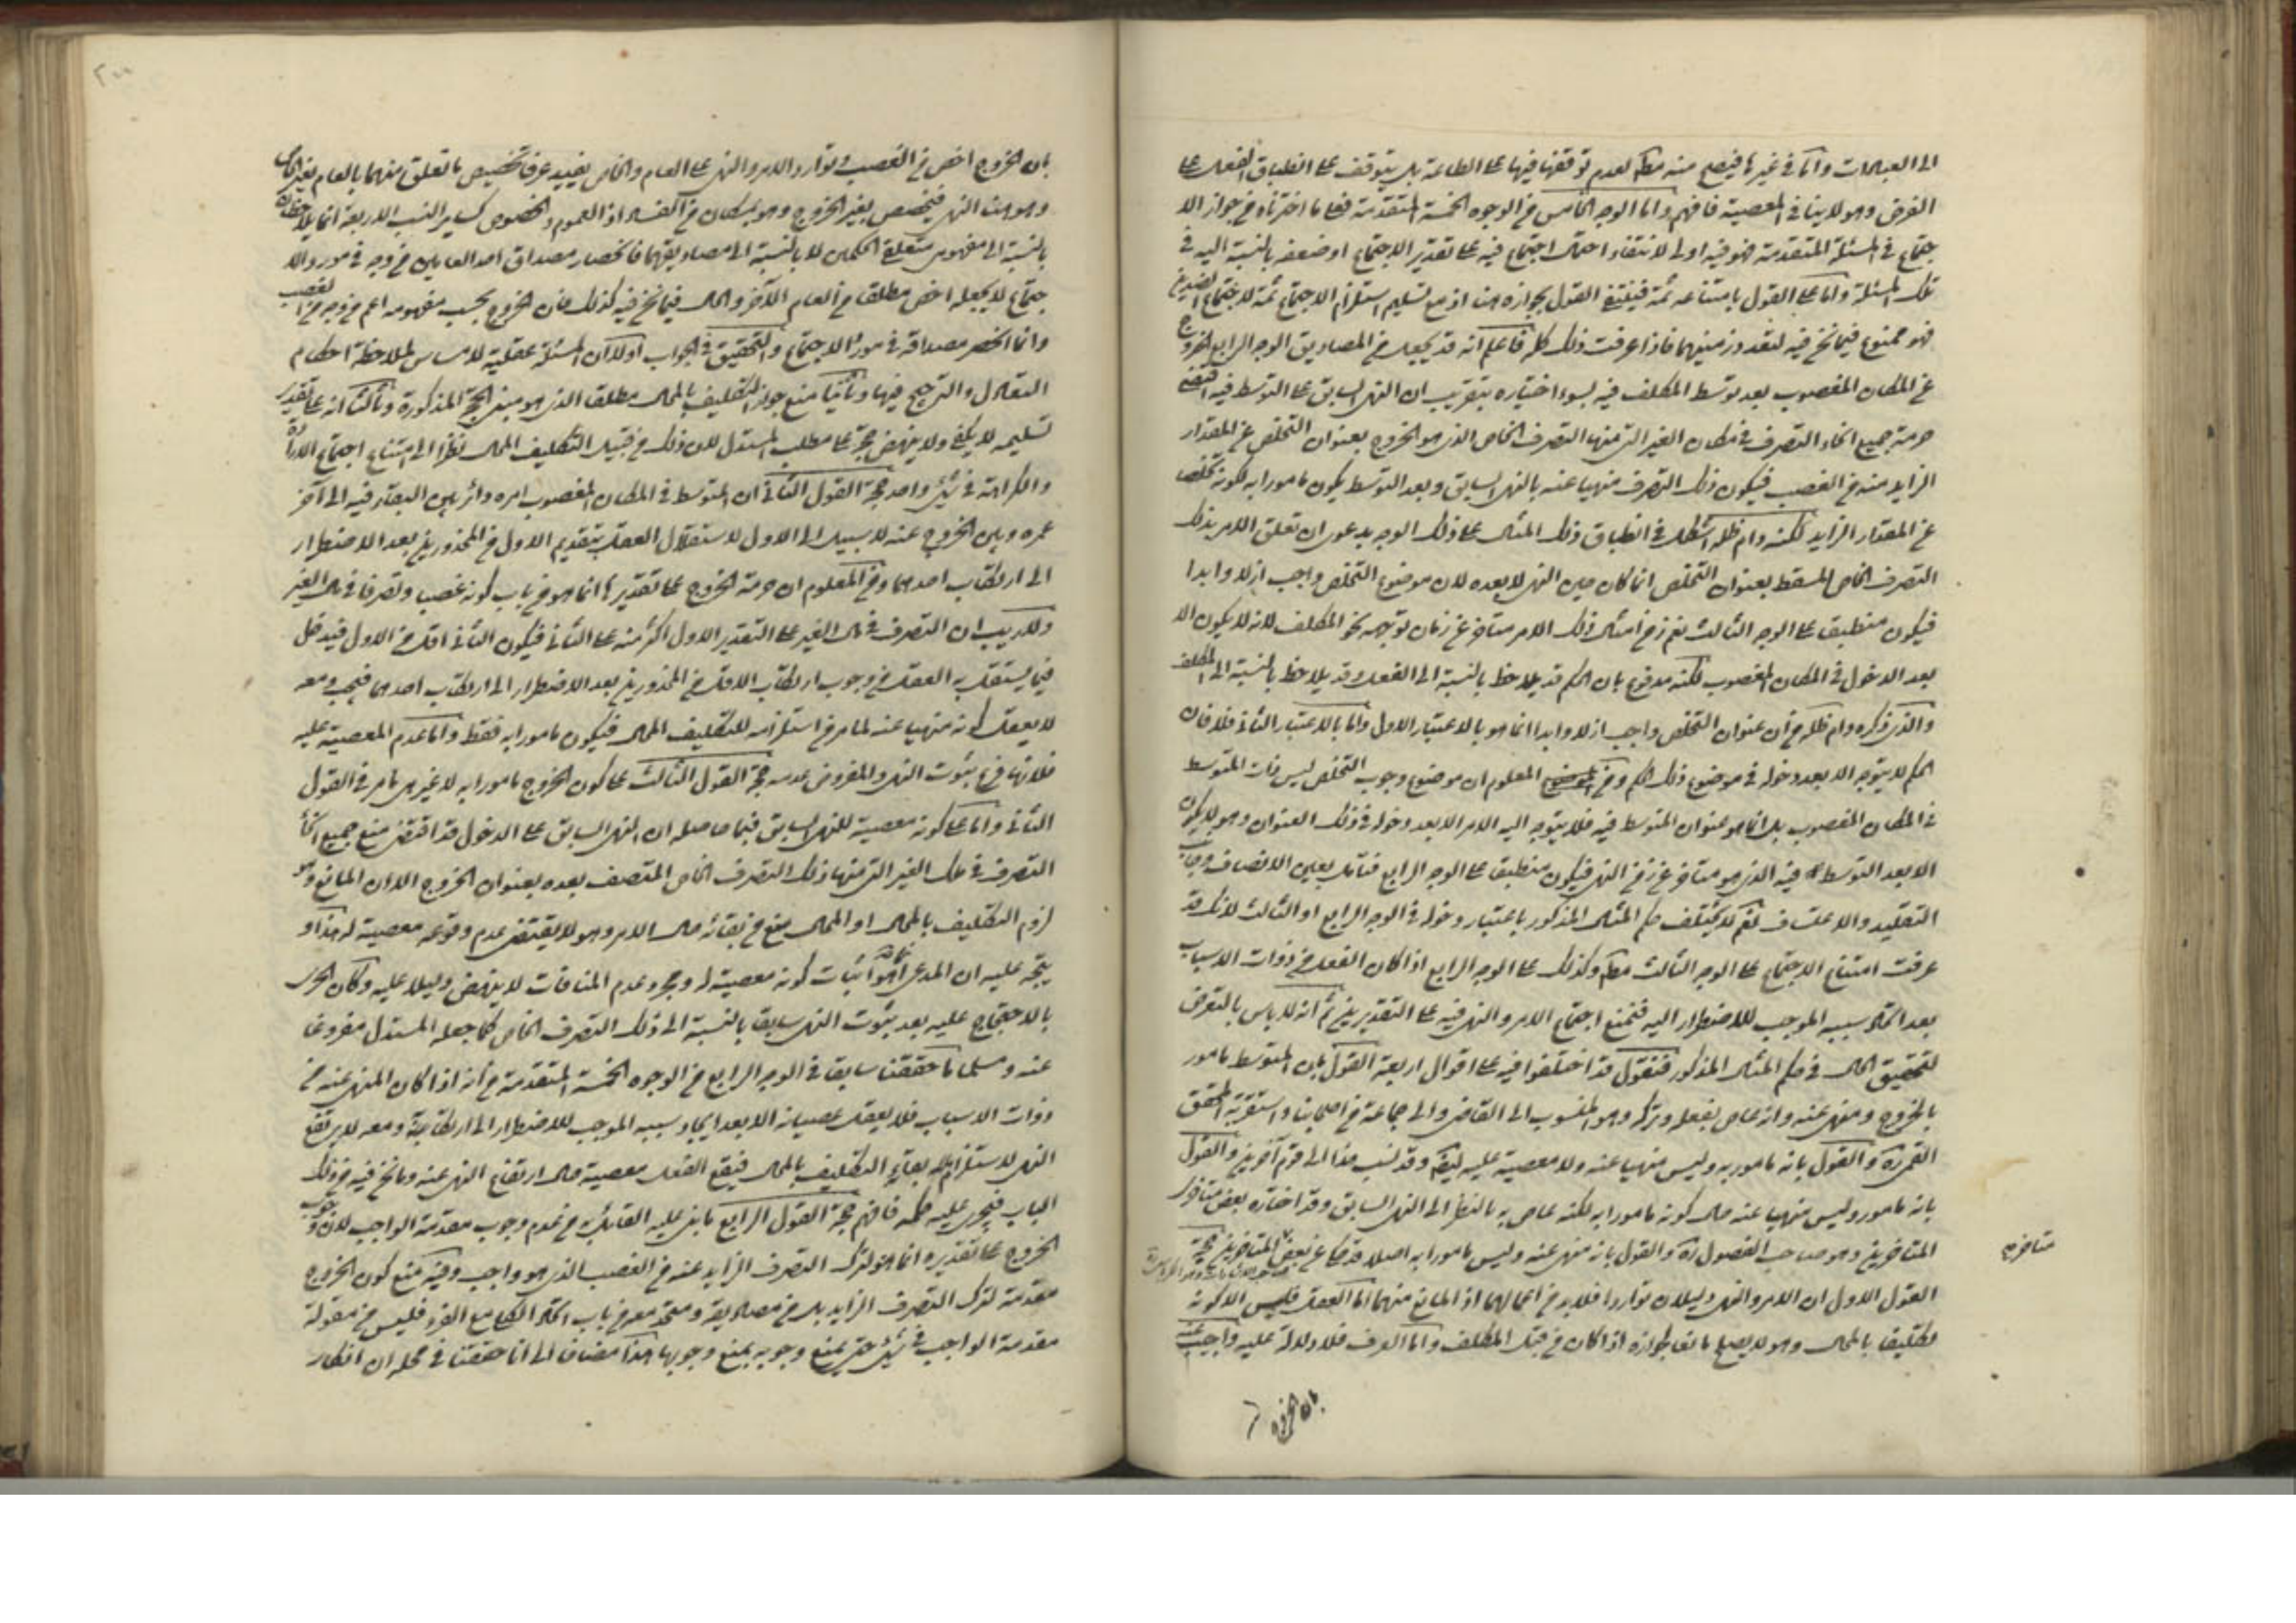 الى العبادات واما في غيرها فيصح منه مطلقا لعدم توقفها فيها على الطاعة بل يتوقف على انطباق الفعل على
الغرض وهو لا ينافي المعصية فافهم واما الوجه الخامس من الوجوه الخمسة المتقدمة فعلى ما اخترناه من جواز الا
جتماع في المسئلة المتقدمة فهو فيه اولى لانتفاء احتمال اجتماع فيه على تقدير الاجتماع او ضعفه بالنسبة اليه في
تلك المسئلة واما على القول بامتناعه ثمة فينتفي القول بجوازه هنا اذ مع تسليم استلزام الاجتماع ثمة لاجتماع الضدين
فهو ممنوع فيما نحن فيه لتعدد زمنيهما فاذا عرفت ذلك كله فاعلم انه قد يجعل من المصاديق الوجه الرابع الخروج
عن المكان المغصوب بعد توسط المكلف فيه بسوء اختياره بتقريب ان النهي السابق على التوسط فيه اقتضى
حرمة جميع انحاء التصرف في مكان الغير التي منها التصرف الخاص الذي هو الخروج بعنوان التخلص عن المقدار
الزايد منه من الغصب فيكون ذلك التصرف منهيا عنه بالنهي السابق وبعد التوسط يكون مامورا به لكونه تخلصا
عن المقدار الزايد لكنه دام ظله استشكل في انطباق ذلك المثال على ذلك الوجه بدعوى ان تعلق الامر بذلك
التصرف الخاص المسقط بعنوان التخلص انما كان حين النهي لا بعده لان موضوع التخلص واجب ازلا وابدا
فيكون منطبقا على الوجه الثالث نعم زمن امتثال ذلك الامر متاخر عن زمان توجهه نحو المكلف لانه لا يكون الا
بعد الدخول في المكان المغصوب لكنه مدفوع بان الحكم قد يلاحظ بالنسبة الى الفعل وقد يلاحظ بالنسبة الى المكلف
والذي ذكره دام ظله من ان عنوان التخلص واجب ازلا وابدا انما هو بالاعتبار الاول واما بالاعتبار الثاني فلا فان
الحكم لا يتوجه الا بعد دخوله في موضوع ذلك الحكم ومن المعلوم ان موضوع وجوب التخلص ليس ذات المتوسط
في المكان المغصوب بل انما هو عنوان المتوسط فيه فلا يتوجه اليه الامر الا بعد دخوله في ذلك العنوان وهو لا يكون
الا بعد التوسط فيه الذي هو متاخر عن زمن النهي فيكون منطبقا على الوجه الرابع فتامل بعين الانصاف وجانب
التقليد والاعتساف نعم لا يختلف حكم المثال المذكور باعتبار دخوله في الوجه الرابع او الثالث لانك قد
عرفت امتناع الاجتماع على الوجه الثالث مطلقا وكذلك على الوجه الرابع اذا كان الفعل من ذوات الاسباب
بعد ايجاد سببه الموجب للاضطرار اليه فيمتنع اجتماع الامر والنهي فيه على التقديرين ثم انه لا باس بالتعرض
لتحقيق الحال في حكم المثال المذكور فنقول قد اختلفوا فيه على اقوال اربعة القول بان المتوسط مامور
بالخروج ومنهي عنه وانه عاص بفعله وتركه وهو المنسوب الى القاضي والى جماعة من اصحابنا واستقربه المحقق
القمي ره والقول بانه مامور به وليس منهيا عنه ولا معصية عليه ايضا وقد نسب هذا الى قوم آخرين والقول
بانه مامور وليس منهيا عنه حال كونه مامورا به لكنه عاص به بالنظر الى النهي السابق وقد اختاره بعض متاخري
المتاخرين وهو صاحب الفصول ره والقول بانه منهي عنه وليس مامورا به اصلا قد حكي عن بعض المتاخرين حجة
متاخري
القول الاول ان الامر والنهي دليلان تواردا فلا بد من اعمالهما اذ المانع منهما اما العقل فليس الا كونه
تكليفا بالمحال وهو لا يصلح مانعا لجوازه اذا كان من قبل المكلف واما العرف فلا دلالة عليه واجيب عنه
بان الخروج
بان الخروج اخص من الغصب وتوارد الامر والنهي على العام والخاص يفيد عرفا تخصيص ما تعلق منهما بالعام بغير الخاص
وهو هنا النهي فيختص بغير الخروج وهو بمكان من الفساد اذ العموم والخصوص كساير النسب الاربعة انما يلاحظان
بالنسبة الى مفهومي متعلقي الحكمين لا بالنسبة الى مصاديقهما فانحصار مصداق احد العامين من وجه في مورد الا
جتماع لا يجعله اخص مطلقا من العام الآخر والحال فيما نحن فيه كذلك فان الخروج بحسب مفهومه اعم من وجه من الغصب
وانما انحصر مصداقه في مورد الاجتماع والتحقيق في الجواب اولا ان المسئلة عقلية لا مساس لملاحظة احكام
التعادل والترجيح فيها وثانيا منع جواز التكليف بالمحال مطلقا الذي هو مبنى الحجة المذكورة وثالثا انه على تقدير
تسليمه لا يكفي ولا ينهض حجة على مطلب المستدل لان ذلك من قبيل التكليف المحال نظرا الى امتناع اجتماع الارادة
والكراهة في شئ واحد حجة القول الثاني ان المتوسط في المكان المغصوب امره دائر بين البقاء فيه الى آخر
عمره وبين الخروج عنه لا سبيل الى الاول لاستقلال العقل بتقديم الاول من المحذورين بعد الاضطرار
الى ارتكاب احدهما ومن المعلوم ان حرمة الخروج على تقديرها انما هو من باب كونه غصبا وتصرفا في مال الغير
ولا ريب ان التصرف في مال الغير على التقدير الاول اكثر منه على الثاني فيكون الثاني اقل من الاول فيدخل
فيما يستقل به العقل من وجوب ارتكاب الاقل من المحذورين بعد الاضطرار الى ارتكاب احدهما فيجب ومعه
لا يعقل كونه منهيا عنه لما مر من استلزامه للتكليف المحال فيكون مامورا به فقط واما عدم المعصية عليه
فلانها فرع ثبوت النهي والمفروض عدمه حجة القول الثالث على كون الخروج مامورا به لا غير هي ما مر في القول
الثاني واما على كونه معصية للنهي السابق فبما حاصله ان النهي السابق على الدخول قد اقتضى منع جميع انحاء
التصرف في ملك الغير التي منها ذلك التصرف الخاص المتصف بعده بعنوان الخروج الا ان المانع وهو
لزوم التكليف بالمحال او المحال منع من بقائه حال الامر وهو لا يقتضي عدم وقوعه معصية له هذا و
يتجه عليه ان المدعى انما هو اثبات كونه معصية له ومجرد عدم المنافات لا ينهض دليلا عليه وكان الحري
بالاحتجاج عليه بعد ثبوت النهي سابقا بالنسبة الى ذلك التصرف الخاص كما جعله المستدل مفروغا
عنه ومسلما ما حققنا سابقا في الوجه الرابع من الوجوه الخمسة المتقدمة من انه اذا كان المنهي عنه من
ذوات الاسباب فلا يعقل عصيانه الا بعد ايجاد سببه الموجب للاضطرار الى ارتكابه ومعه لا يرتفع
النهي لاستلزام بقائه التكليف بالمحال فيقع الفعل معصية حال ارتفاع النهي عنه وما نحن فيه من ذلك
الباب فيجري عليه حكمه فافهم حجة القول الرابع ما بنى عليه القائل به من عدم وجوب مقدمة الواجب لان وجوب
الخروج على تقديره انما هو لترك التصرف الزايد عنه من الغصب الذي هو واجب وفيه منع كون الخروج
مقدمة لترك التصرف الزايد بل من مصاديقه ومتحد معه من باب اتحاد الكلي مع الفرد فليس من مقولة
مقدمة الواجب في شئ حتى يمنع وجوبه بمنع وجوبها هذا مضافا الى انا حققنا في محله ان انكار